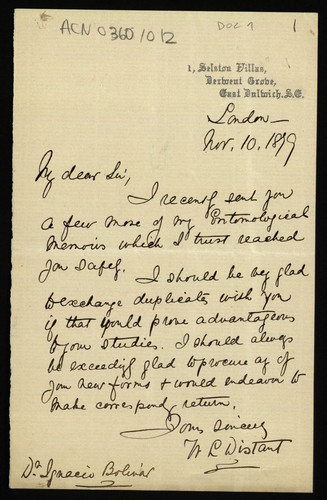 ACN0360/012
DOC 9
1
1, Selston Villas,
Derwent Grove,
East Dulwich. S.E.
London —
Nov. 10. 1879
My dear Sir,
I recently sent you
a few more of my Entomological
Memoirs which I trust reached
you safely.
I should be very glad
to exchange duplicates with you
if that would prove advantageous
to your studies. I should always
be exceedingly glad to procure any of
your new forms & would endeavor to
make corresponding return.
Yours sincerely
W L Distant
Dn Ignacio Bolívar